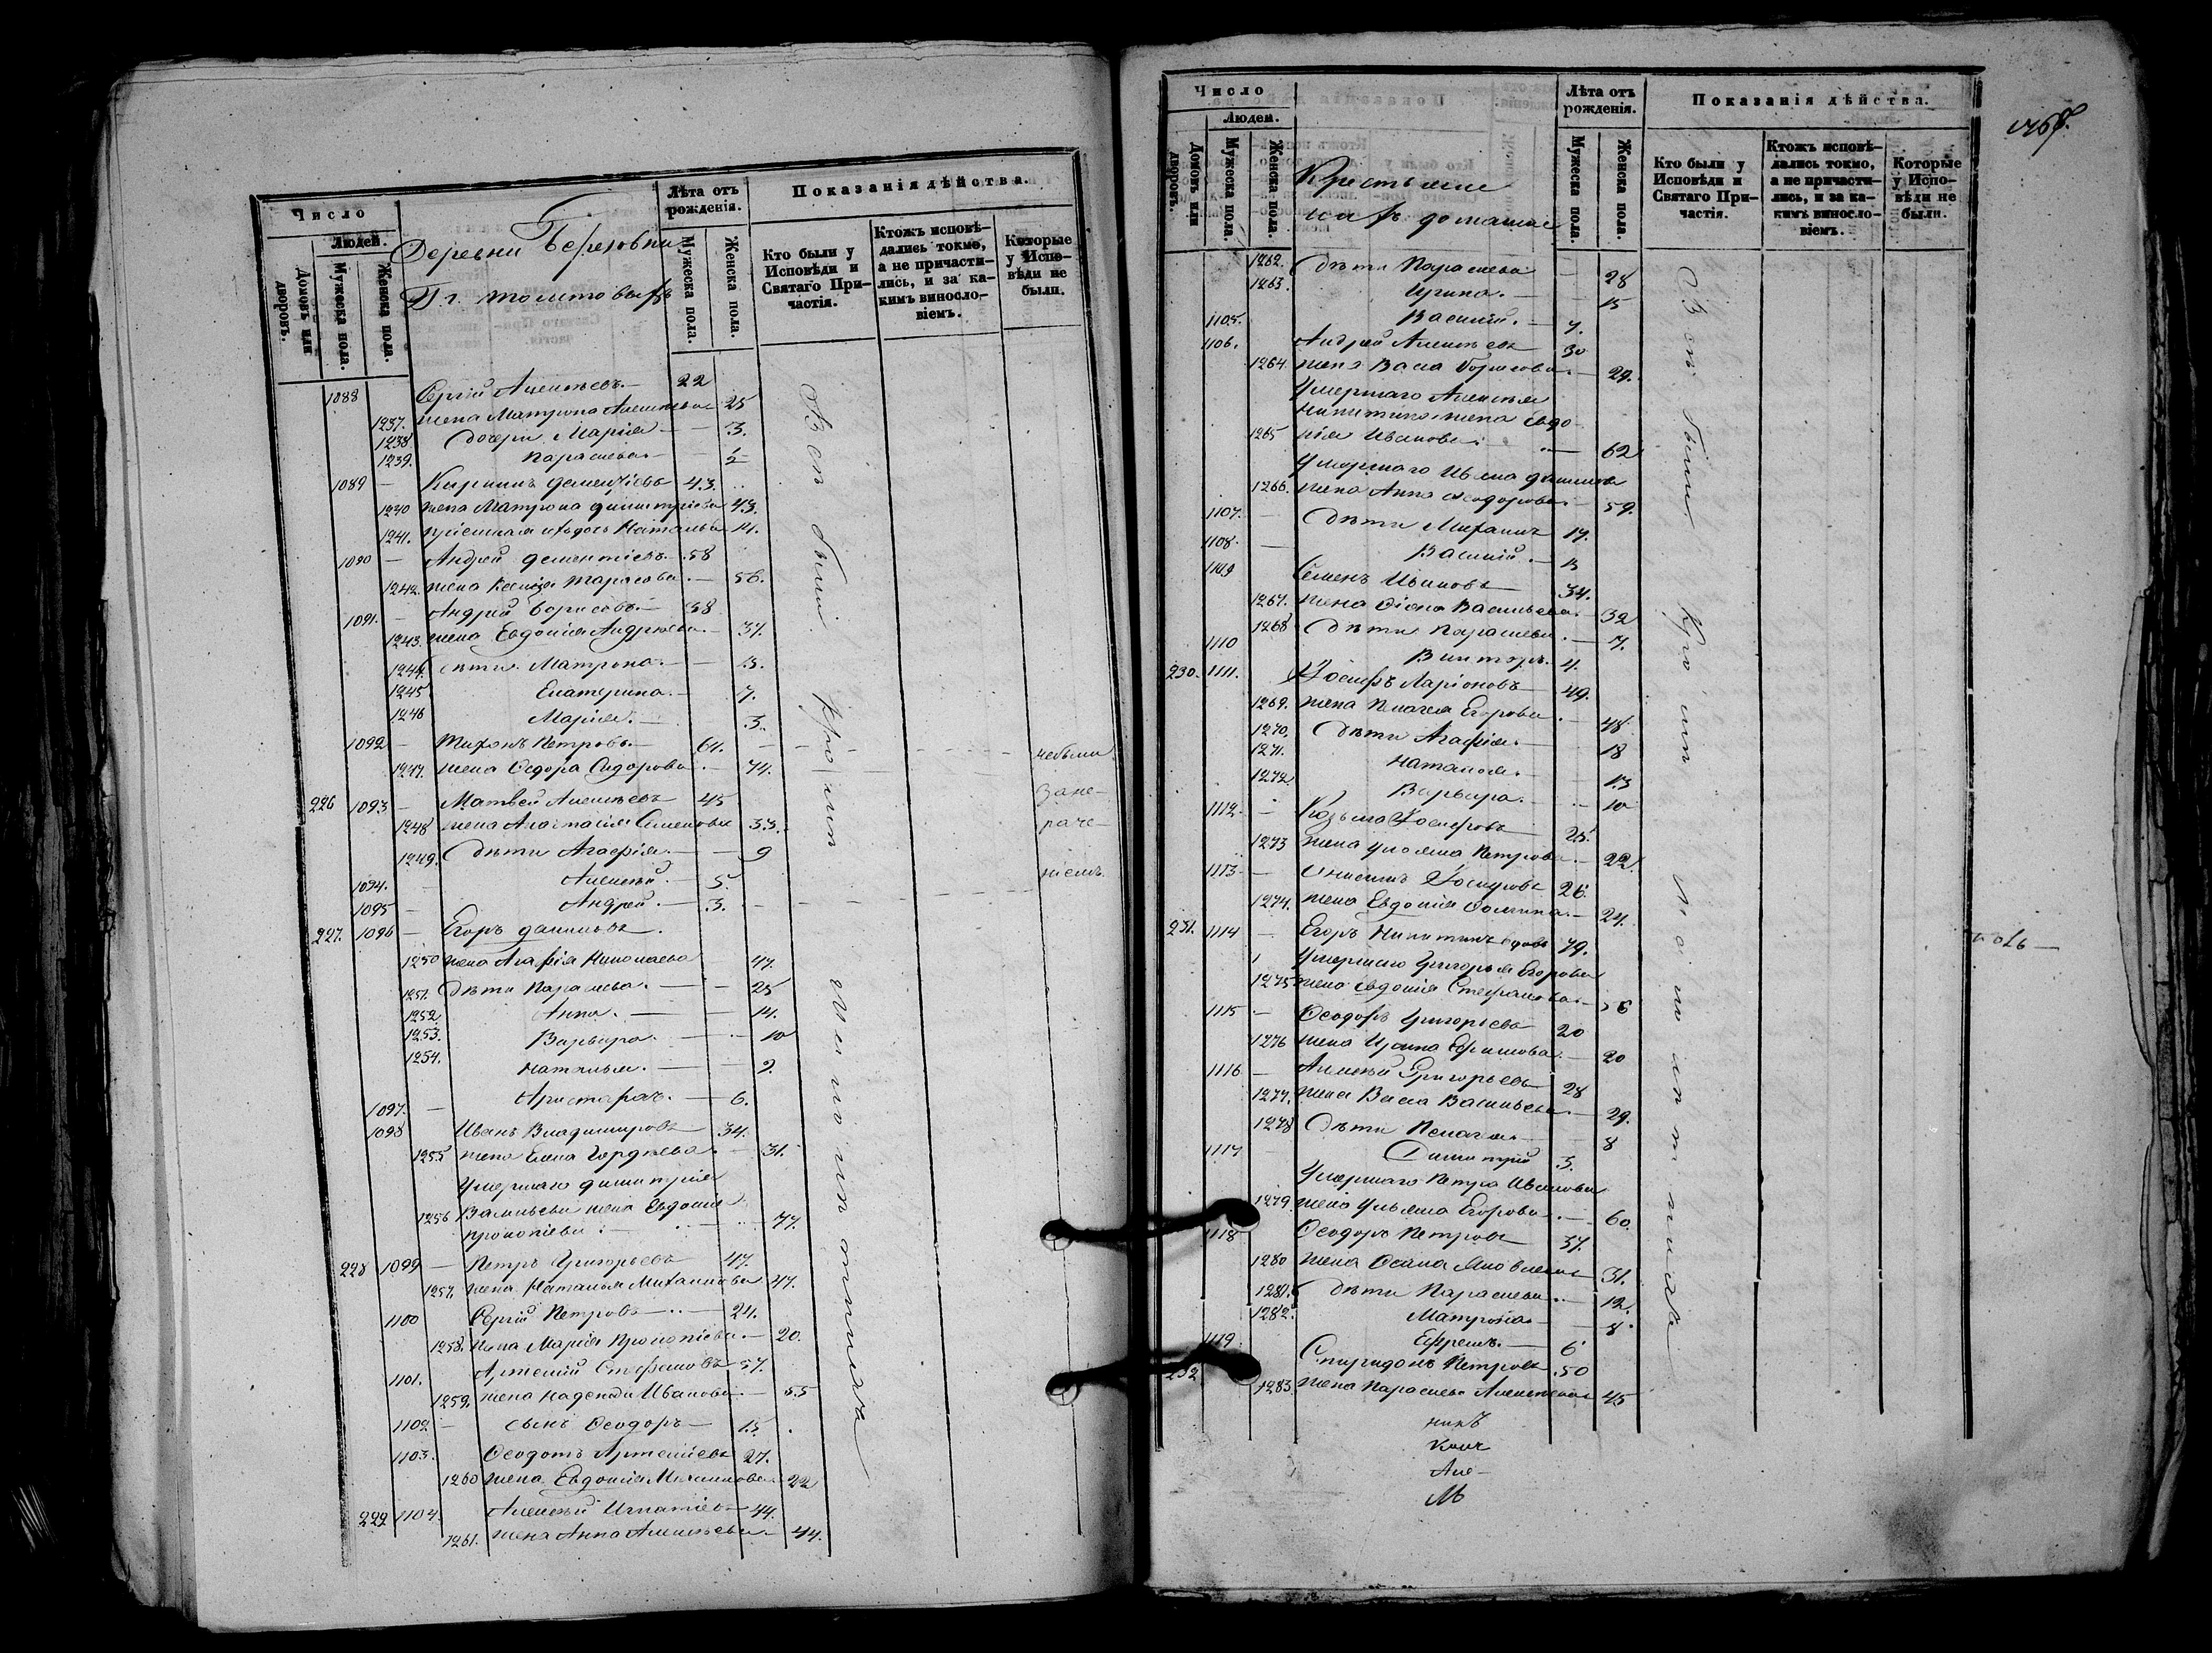 Число
Людей.
Домовъ или дворовъ.
Мужеска пола.
Женска пола.
Деревни Березовки
Гг. Толстовыхъ
Лѣта отъ рожденія.
Мужеска пола.
Женска пола.
Показанія дѣйства.
Кто были у Исповѣди и Святаго Причастія.
Ктожъ исповѣдались токмо, а не причастились, и за какимъ винословіемъ.
Которые у Исповѣди не были.
1088 Сергій Алексѣевъ. — 22
1237. жена Матрона Алексѣева 25
1238 дочери Марія — — 3.
1239. Параскева — — 2
1089 — Кириллъ Дементіевъ 43.
1240 жена Матрона Димитріева 43.
1241. Наталья 14.
1090 — Андрей Дементіевъ. 58
1242. жена Ксенія Тарасова. — 56.
1091. — Андрей Борисовъ. — 38
1243. жена Евдокія Андреева. — 37.
1244. дѣти. Матрона. — 13.
1245 Екатерина. — 7.
1246 Марія. — 3.
1092 — Тихонъ Петровъ. — 64.
1247. жена Ѳедора Сидорова. — 74.
226 1093 — Матвей Алексѣевъ 45
1248 жена Анастасія Семенова 33.
1249. Дѣти Агафія. — — 9
1094. — Алексѣй. — 5.
1095 — Андрей. — 3.
227. 1096 — Егоръ Даниловъ.
1250 жена Агафія Николаева 47.
1251. Дѣти Параскева. — — 25
1252 Анна. — — 14.
1253. Варвара. — — 10
1254. Наталья. — — 2.
1097. — Аристархъ. — 6.
1098 Иванъ Владимировъ 34.
1255 жена Елена Гордѣева. — 31.
Умершаго Димитрія
1256 Васильева жена Евдокія
Прокопіева. — 77.
228 1099 — Петръ Григорьевъ 47.
1257. жена Наталья Михайлова 47.
1100 Сергій Петровъ — 24.
1258. жена Марія Прокопіева. — 20.
1101. Артемій Стефановъ 57.
1259. жена Надежда Иванова. — 55
1102 — сынъ Ѳеодоръ — 15.
1103. Ѳеодотъ Артеміевъ 27.
1260 жена Евдокія Михайлова. 22
229 1104. Алексѣй Игнатіевъ 44.
1261. жена Анна Алексѣева. 44.
Всѣ были.
небыли
за не-
раче-
ніемъ.
Число
Людей.
Домовъ или дворовъ.
Мужеска пола.
Женска пола.
Крестьяне
ихъ домашніе
Лѣта отъ рожденія.
Мужеска пола.
Женска пола.
Показанія дѣйства.
Кто были у Исповѣди и Святаго Причастія.
Ктожъ исповѣдались токмо, а не причастились, и за какимъ винословіемъ.
Которые у Исповѣди не были.
1262. Дѣти Параскева — 28
1263. Ирина. — 15
1105. Василій. — 7.
1106. Андрей Алексѣевъ 30
1264. жена Васса Борисова. — 29.
Умершаго Алексѣя
Никитина жена Евдо-
1265 кія Иванова. — 62
Умершаго Ивана
1266. жена Анна Ѳеодорова — 59.
1107. — Дѣти Михаилъ 17.
1108. — Василій. — 13
1109 Семенъ Ивановъ 34.
1267. жена Васильева. 32
1268 Дѣти Параскева. — 7.
1110 Викторъ. 4.
230. 1111. Іосифъ Ларіоновъ 49.
1269. жена Пелагея Егорова. — 48
1270. Дѣти Агафія. — 18
1271. Наталья. — 13
1272 Варвара. — 10
1112. — Козьма Іосифовъ 25.
1273 жена Ульяна Петрова. — 22.
1113 — Анисимъ Іосифовъ 26.
1274. жена Евдокія — 24.
231. 1114 — Егоръ Никитинъ вдовъ 79.
Умершаго Григорья Егорова
1275 жена Евдокія Стефанова — 56
1115 — Ѳеодоръ Григорьевъ 20
1276 жена Ирина Ефимова. — 20
1116 — Алексѣй Григорьевъ 28
1277. жена Васса Васильева. — 29.
1278 Дѣти Пелагея. — 8
1117 Димитрій 3.
Умершаго Петра Иванова
1279. жена Ульяна Егорова. — 60.
1118 Ѳеодоръ Петровъ 37.
1280 жена Яковлева 31.
1281. Дѣти Параскева. — 12.
1282. Матрона. — 8.
1119 Ефремъ. — 6
232 Спиридонъ Петровъ 50
1283. жена Параскева Алексѣева 45
Всѣ были